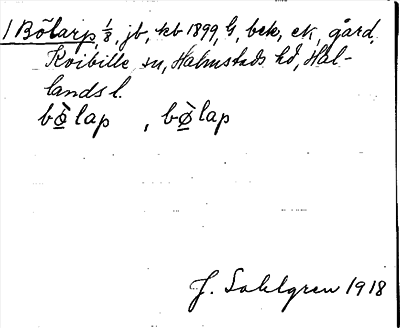 1 Bölarp, 1/8, jb, kb 1899, G, bek, ek, gård,
Kvibille sn, Halmstads hd, Hal-
lands l.
bø̀lap , bø̀lap
J. Sahlgren 1918